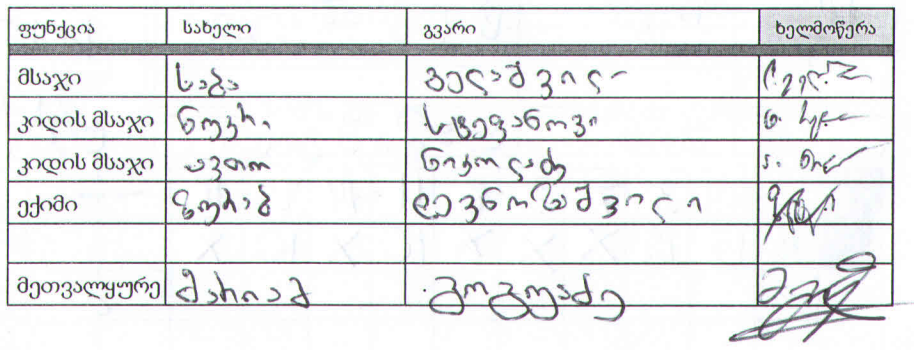 ფუნქცია სახელი გვარი ხელმოწერა
მსაჯი საბა გელაშვილი
კიდის მსაჯი ნოებრ. სტეფანოვი
კიდის მსაჯი ავთო ნიკოლაძე
ექიმი ზურაბ დევნოზაშვილი
მეთვალყურე მარიამ გოგუაძე